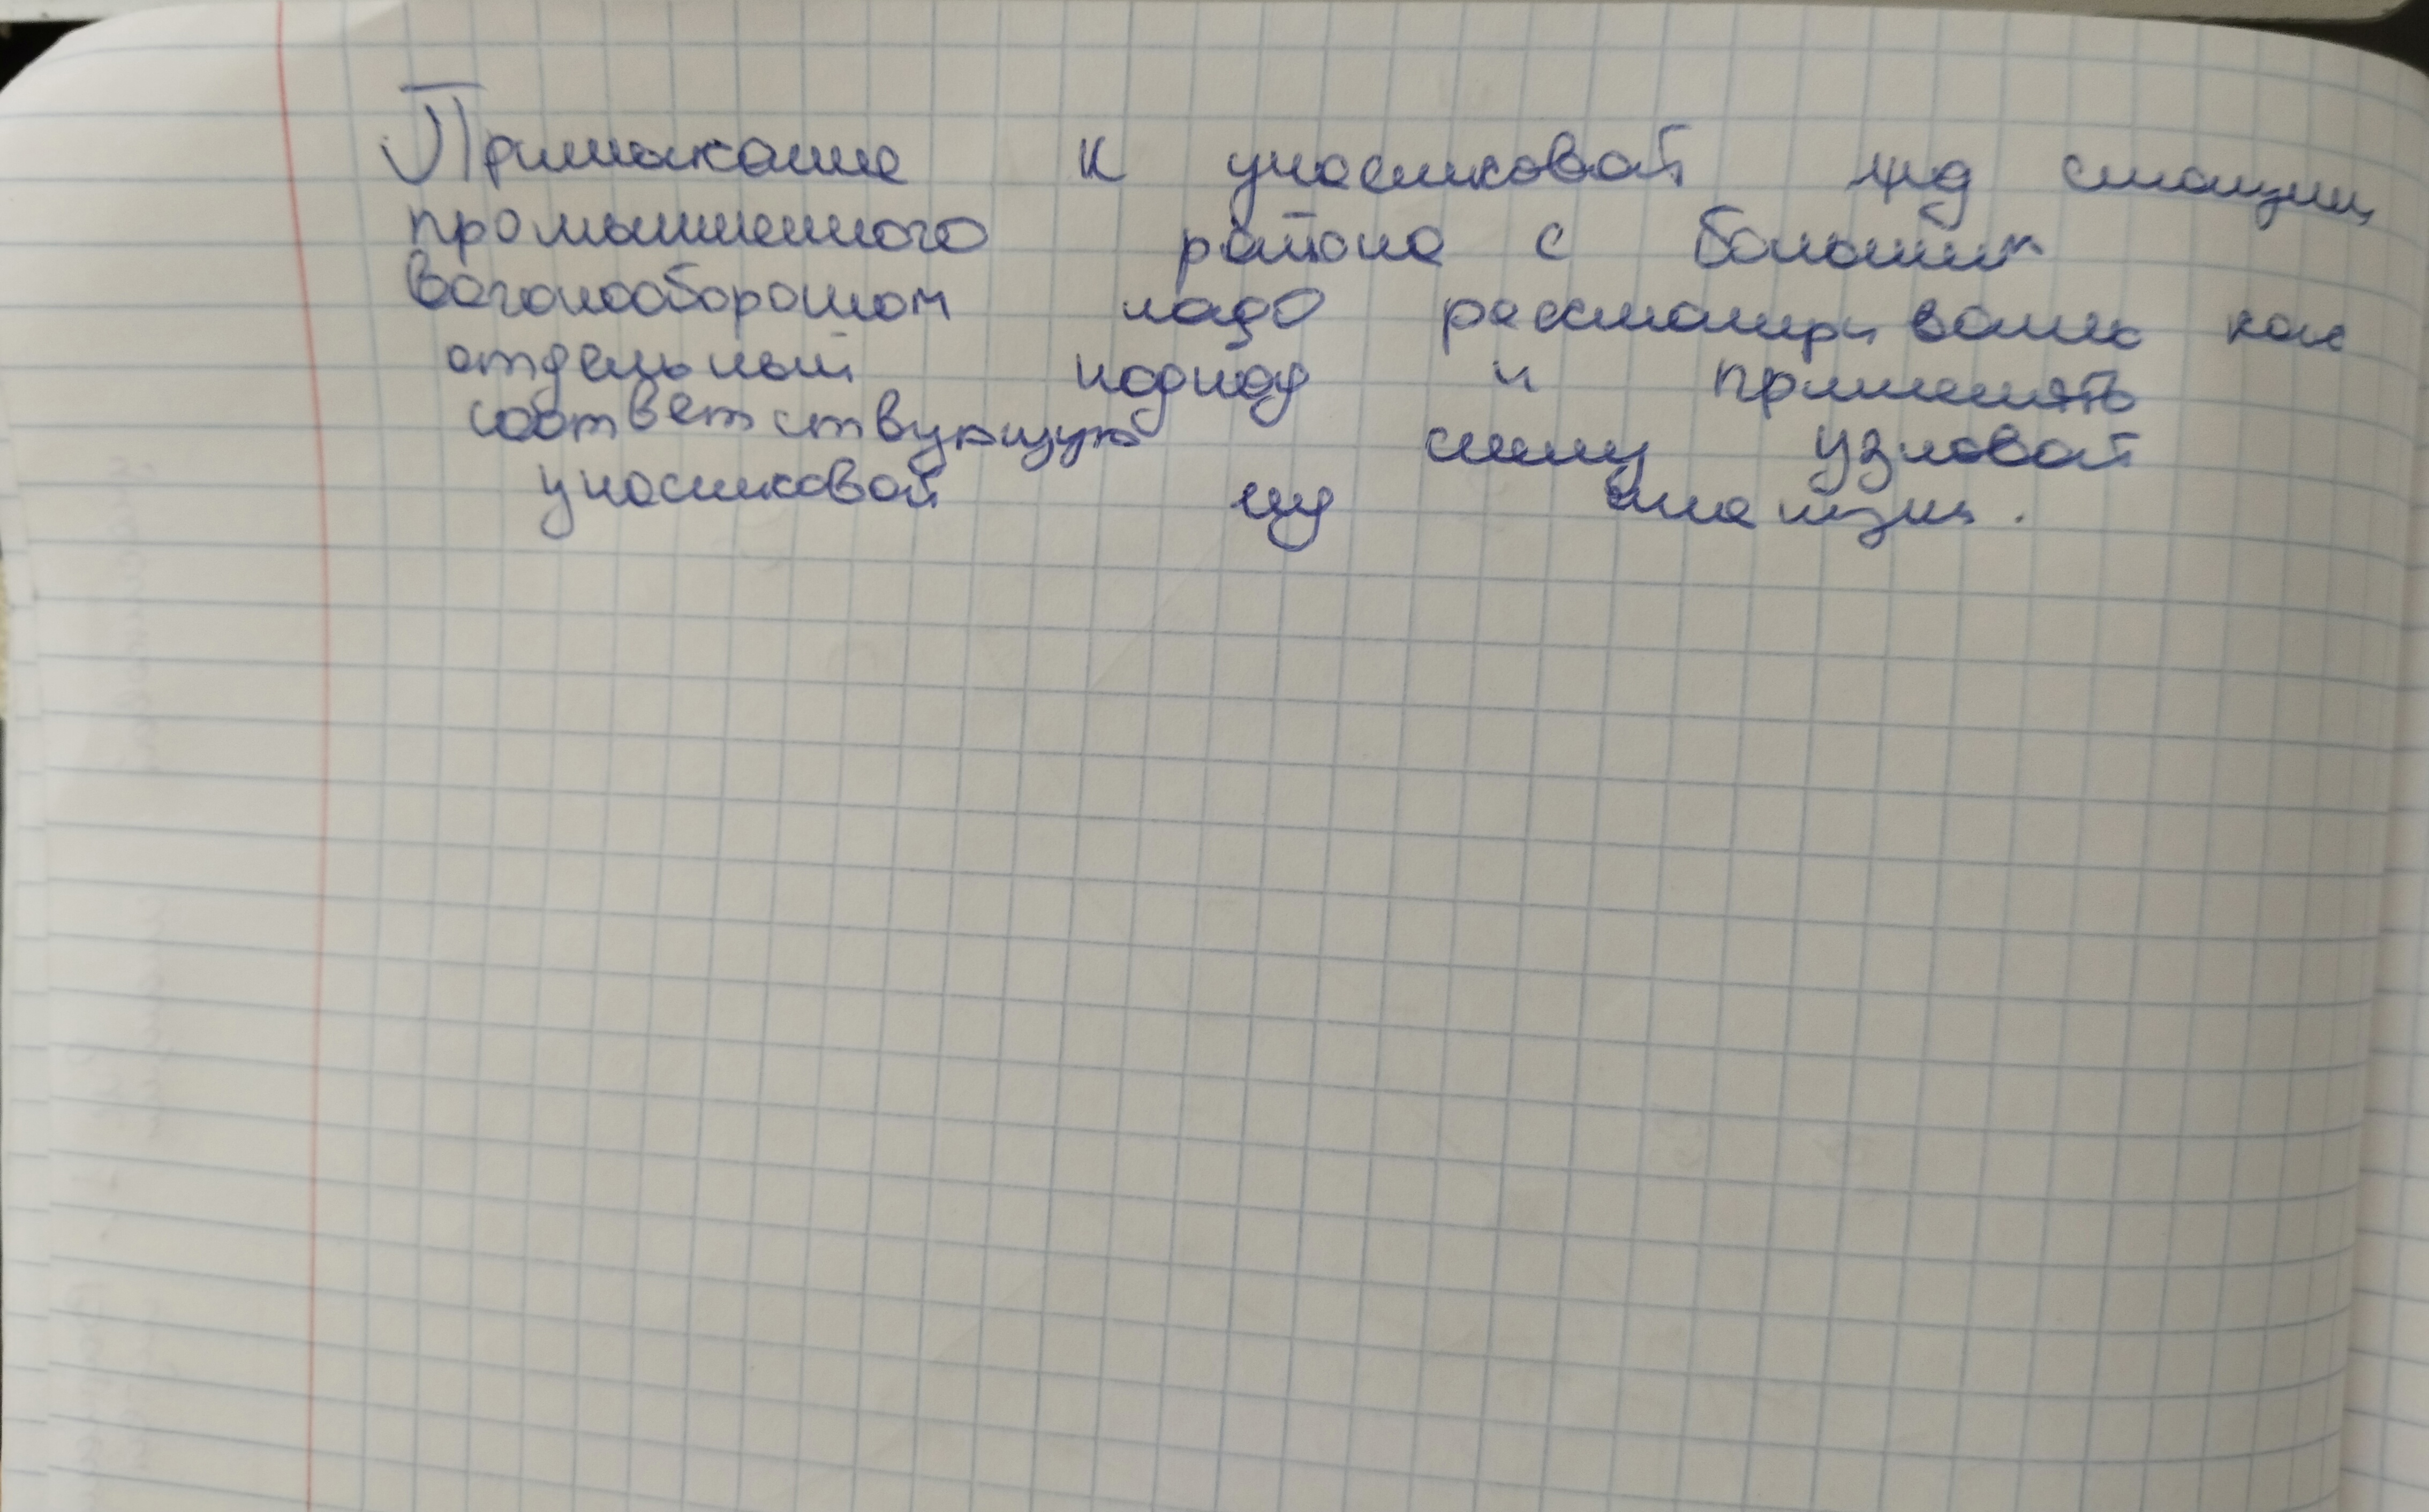 Примыкание к участковой жд станции
промышленного района с большим
вагонооборотом надо рассматривать как
отдельный подход и применять
соответствующую схему узловой
участковой жд станции.